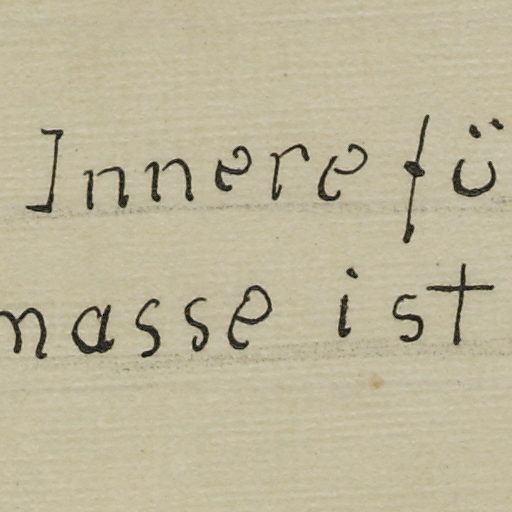 Innere fü
masse ist